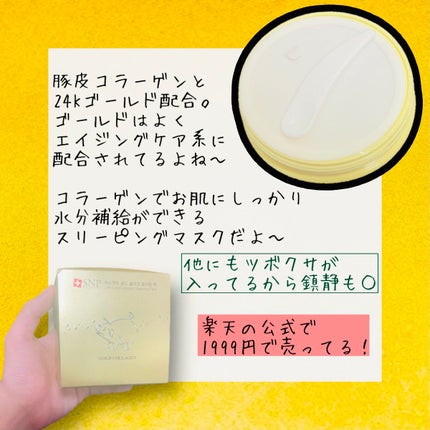 豚皮コラーゲンと
24kゴールド配合。
ゴールドはよく
エイジングケア系に
配合されてるよね〜
コラーゲンでお肌にしっかり
水分補給ができる
スリーピングマスクだよ〜
他にもツボクサが
入ってるから鎮静も〇
楽天の公式で
1999円で売ってる！
SNP
GOLD COLLAGEN